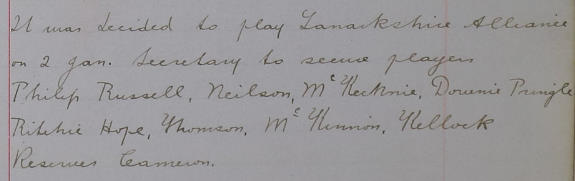 It was decided to play Lanarkshire Alliance
on 2 Jan. Secretary to secure players
Philip Russell, Neilson, McKecknie, Downie Pringle
Ritchie Hope, Thomson, McKinnon, Kellock
Reserves Cameron.